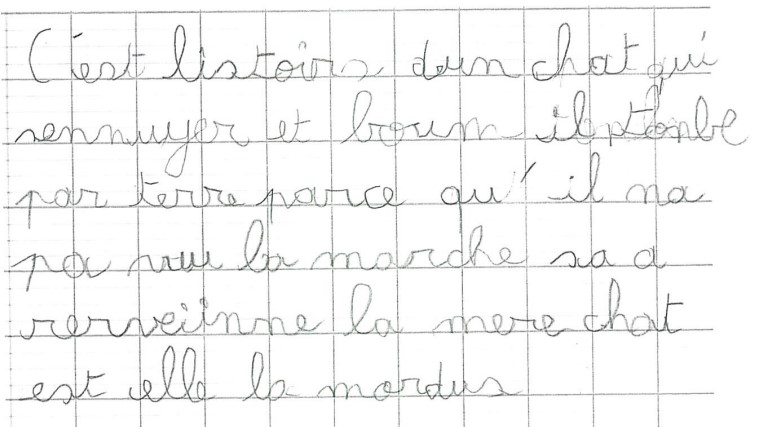 C'est listoirs dun chat qui
sennuyer et boum il tonbe
par terre parce qu'il na
pa vuu la marche sa a
rerveiinne la mere chat
est elle la mordus